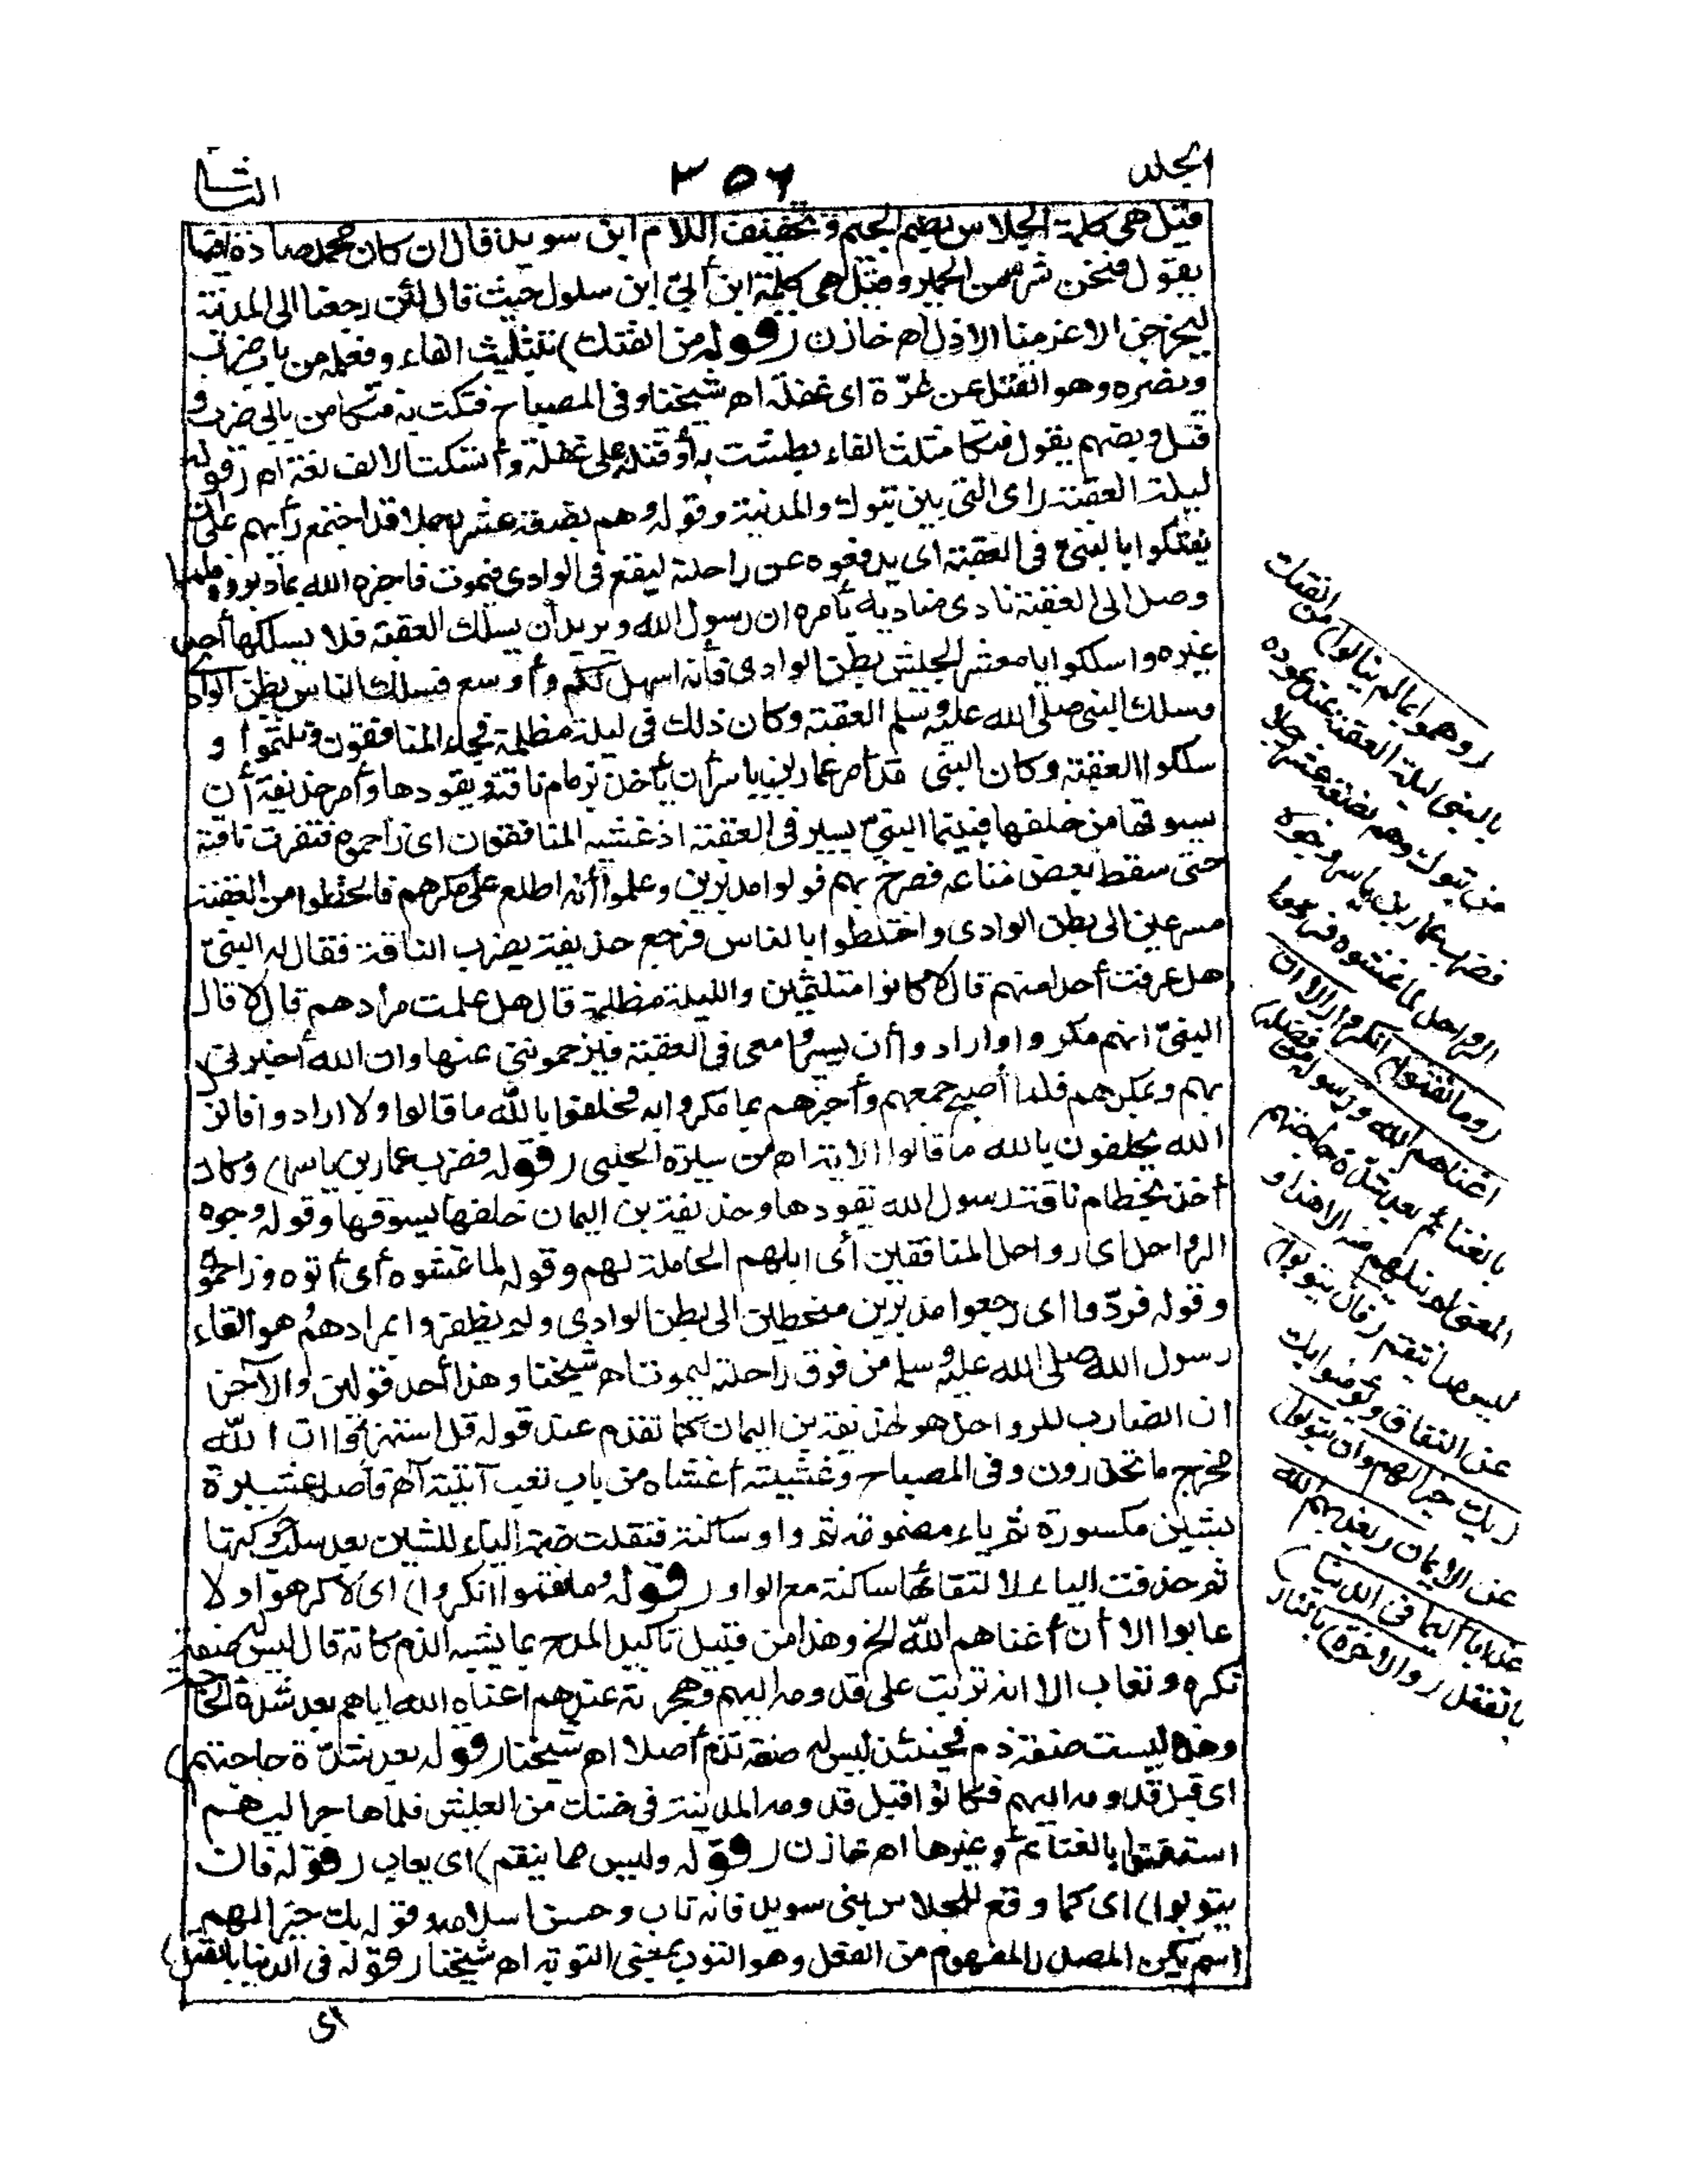 المجلد
٣٥٦
الثا
قيل هي كلمة الجلاس بضم الجيم وتخفيف اللام ابن سويد قال ان كان محمد صادقا فيما
يقول فنحن شر من الحمير وقيل هي كلمة ابن أبيّ ابن سلول حيث قال لئن رجعنا الى المدينة
ليخرجن الاعز منها الاذل اه خازن (قوله من الفتك) بتثليث الفاء وفعله من باب ضرب
ونصره وهو القتل عن غرّة اى غفلة اه شيخنا وفى المصباح فتكت به فتكا من بابى ضرب و
قتل وبعضهم يقول فتكا مثلث الفاء بطشت به أو قتلته على غفلة وأفتكت بالالف لغة اه (قوله
ليلة العقبة) اى التى بين تبوك والمدينة وقوله وهم بضعة عشر رجلا قد اجتمع رأيهم على أن
يفتكوا بالنبىّ فى العقبة اى يدفعوه عن راحلته ليقع فى الوادى فيموت فاخبره الله بما دبروه فلما
وصل الى العقبة نادى مناديه بأمره ان رسول الله يريد أن يسلك العقبة فلا يسلكها أحد
غيره واسلكوا يا معشر الجيش بطن الوادى فأنه اسهل لكم وأوسع فسلك الناس بطن الوادى
وسلك النبى صلى الله عليه وسلم العقبة وكان ذلك فى ليلة مظلمة فجاء المنافقون وتلثموا و
سلكوا العقبة وكان النبى قد أمر عمار بن ياسر أن يأخذ بزمام ناقته ويقودها وأمر حذيفة أن
يسوقها من خلفها فبينما النبىّ يسير فى العقبة اذ غشيه المنافقون اى زاحموه فنفرت ناقته
حتى سقط بعض متاعه فصرخ بهم فولوا مدبرين وعلموا أنه اطلع على مكرهم فانحطوا من العقبة
مسرعين الى بطن الوادى واختلطوا بالناس فرجع حذيفة يضرب الناقة فقال له النبىّ
هل عرفت أحدا منهم قال لا كانوا متلثمين والليلة مظلمة قال هل علمت مرادهم قال لا قال
النبىّ انهم مكروا وارادوا أن يسيروا معى فى العقبة فيزحموننى عنها وان الله أخبرنى
بهم وبمكرهم فلما أصبح جمعهم وأخبرهم بما مكروا به فحلفوا بالله ما قالوا ولا ارادوا فانزل
الله يحلفون بالله ما قالوا الآية اه من سيرة الحلبى (قوله فضرب عمار بن ياسر) وكان
أخذ بخطام ناقة رسول الله يقودها وحذيفة بن اليمان خلفها يسوقها وقوله وجوه
الرواحل اى رواحل المنافقين أى ابلهم الحاملة لهم وقوله لما غشوه أى أتوه وزاحموه
وقوله فردّوا اى رجعوا مدبرين منحطين الى بطن الوادى ولم يظفروا بمرادهم هو القاء
رسول الله صلى الله عليه وسلم من فوق راحلته ليموت اه شيخنا وهذا أحد قولين والآخر
ان الضارب للرواحل هو حذيفة بن اليمان كما تقدم عند قوله قل استهزؤا ان الله
مخرج ما تحذرون وفى المصباح وغشيته أغشاه من باب تعب أتيته اه فأصله غشيوه
بشين مكسورة ثم ياء مضمومة ثم واو ساكنة فنقلت ضمة الياء للشين بعد سلب حركتها
ثم حذفت الياء لالتقائها ساكنة مع الواو (قوله وما نقموا انكروا) اى كرهوا ولا
عابوا الا أن أغناهم الله الخ وهذا من قبيل تأكيد المدح بما يشبه الذم كانه قال ليس له صفة
تكره وتعاب الا انه ترتب على قدومه اليهم وهجرته عندهم اغناه الله اياهم بعد شدة الحاجة
وهذه ليست صفة ذم فحينئذ ليس له صفة تذم أصلا اه شيخنا (قوله بعد شدّة حاجتهم)
اى قبل قدومه اليهم فكانوا قبل قدومه المدينة فى ضنك من العيش فلما هاجر اليهم
استغنوا بالغنائم وغيرها اه خازن (قوله وليس مما ينقم) اى يعاب (قوله فان
يتوبوا) اى كما وقع للجلاس بن سويد فانه تاب وحسن اسلامه وقوله يك خيرا لهم
اسم يكن المصدر المفهوم من الفعل وهو التوب بمعنى التوبة اه شيخنا (قوله فى الدنيا بالقتل)
اى
(وهموا بما لم ينالوا) من الفتك
بالنبى ليلة العقبة عند عوده
من تبوك وهم بضعة عشر رجلا
فضرب عمار بن ياسر وجوه
الرواحل لما غشوه فردوا
(وما نقموا) انكروا (الا ان
اغناهم الله ورسوله من فضله)
بالغنائم بعد شدة حاجتهم
المعنى لم ينلهم منه الا هذا و
ليس مما ينقم (فان يتوبوا)
عن النفاق ويؤمنوا بك
(يك خيرا لهم وان يتولوا)
عن الايمان (يعذبهم الله
عذابا أليما فى الدنيا)
بالقتل (والاخرة) بالنار